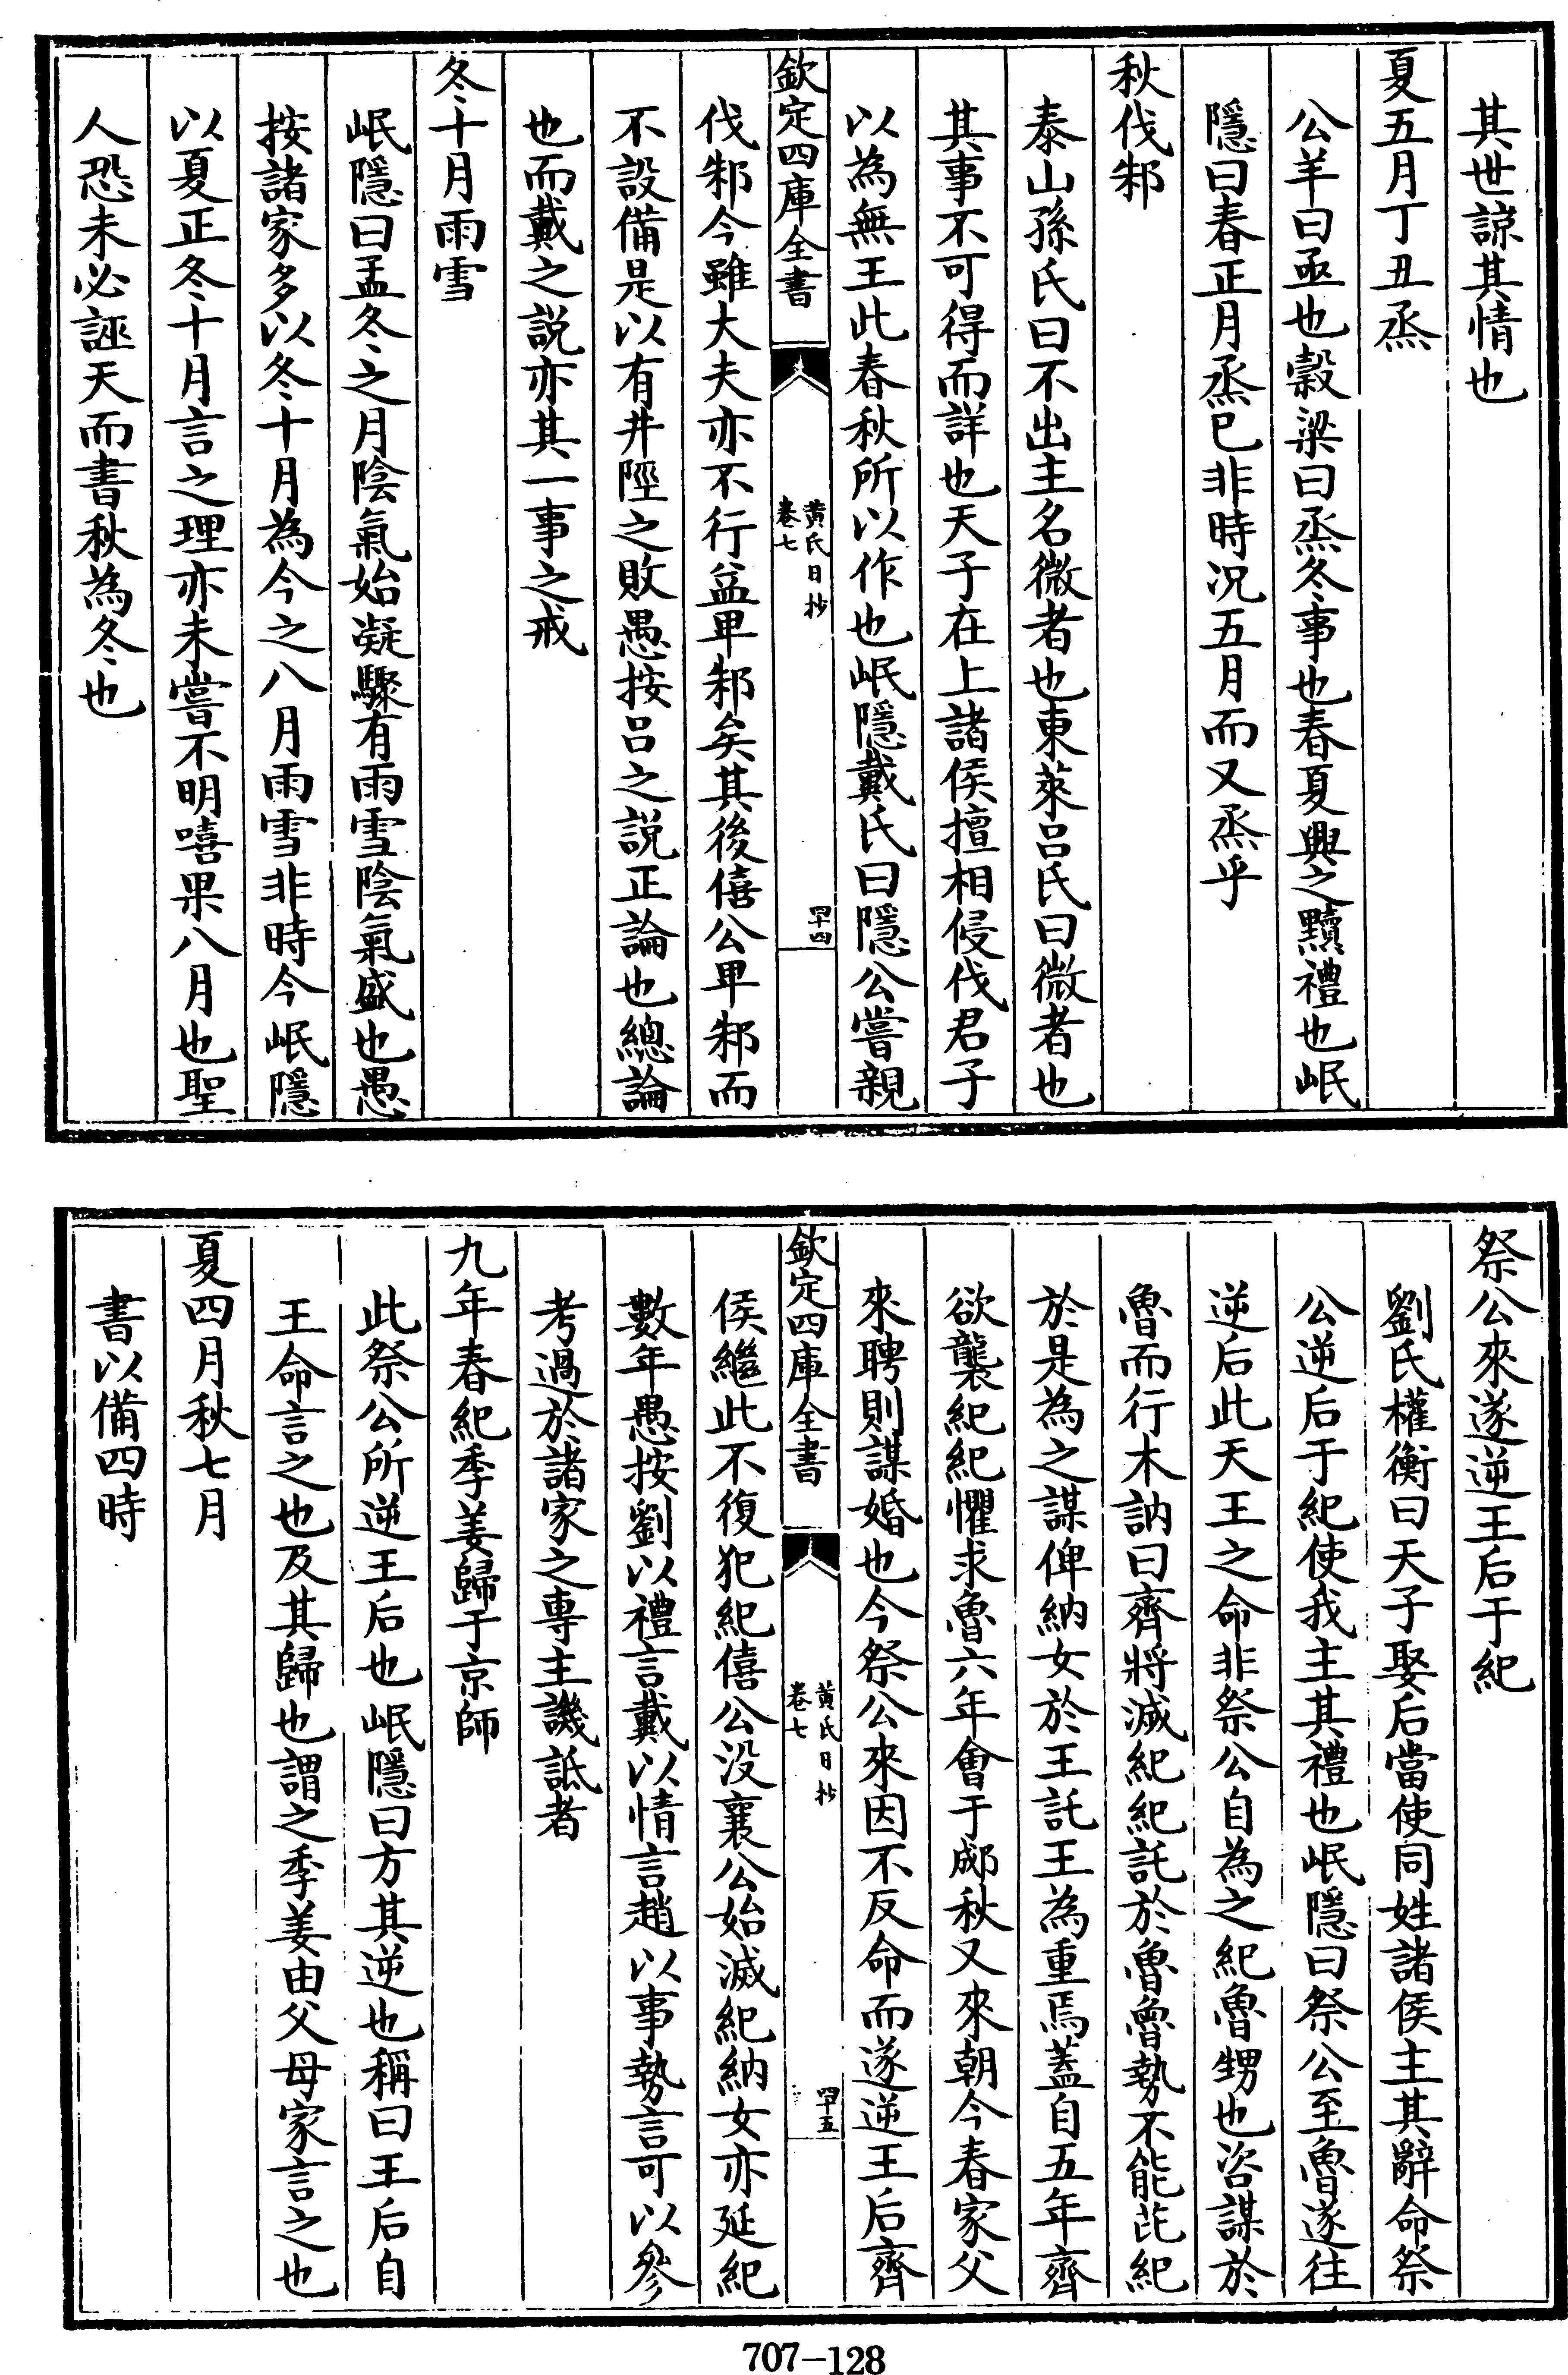 其世諒其情也
夏五月丁丑烝
公羊曰亟也穀梁曰烝冬事也春夏興之黷禮也岷
隱曰春正月烝已非時况五月而又烝乎
秋伐邾
泰山孫氏曰不出主名微者也東萊吕氏曰微者也
其事不可得而詳也天子在上諸侯擅相侵伐君子
以為無王此春秋所以作也岷隱戴氏曰隱公嘗親
欽定四庫全書
黄氏日抄
卷七
四十四
伐邾今雖大夫亦不行益卑邾矣其後僖公卑邾而
不設備是以有井陘之敗愚按吕之説正論也總論
也而戴之説亦其一事之戒
冬十月雨雪
岷隱曰孟冬之月陰氣始凝驟有雨雪陰氣盛也愚
按諸家多以冬十月為今之八月雨雪非時今岷隱
以夏正冬十月言之理亦未嘗不明嘻果八月也聖
人恐未必誣天而書秋為冬也
祭公來遂逆王后于紀
劉氏權衡曰天子娶后當使同姓諸侯主其辭命祭
公逆后于紀使我主其禮也岷隱曰祭公至魯遂往
逆后此天王之命非祭公自為之紀魯甥也咨謀於
魯而行木訥曰齊將滅紀紀託於魯魯勢不能芘紀
於是為之謀俾納女於王託王為重焉蓋自五年齊
欲襲紀紀懼求魯六年會于郕秋又來朝今春家父
來聘則謀婚也今祭公來因不反命而遂逆王后齊
欽定四庫全書
黄氏日抄
卷七
四十五
侯繼此不復犯紀僖公没襄公始滅紀納女亦延紀
數年愚按劉以禮言戴以情言趙以事勢言可以參
考過於諸家之專主譏詆者
九年春紀季姜歸于京師
此祭公所逆王后也岷隱曰方其逆也稱曰王后自
王命言之也及其歸也謂之季姜由父母家言之也
夏四月秋七月
書以備四時
707-128